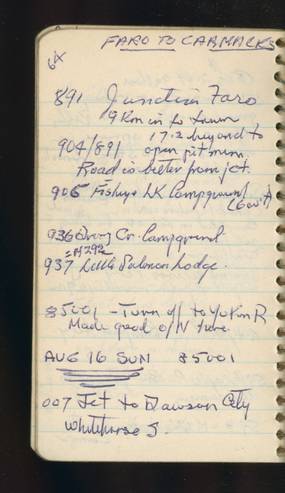 64
FARO TO CARMACKS
891 Junction Faro
9 Km in to town
17.2 beyond to
904/891 open pit mine.
Road is better from jct.
905 Fisheye LK Campground
(Gov't)
936 Drury Cr. Campground
= H292
937 Little Salmon Lodge.
85001 - Turn off to Yukon R
Made good o/N
AUG 16 SUN 85001
007 Jct to Dawson City
Whitehorse S.